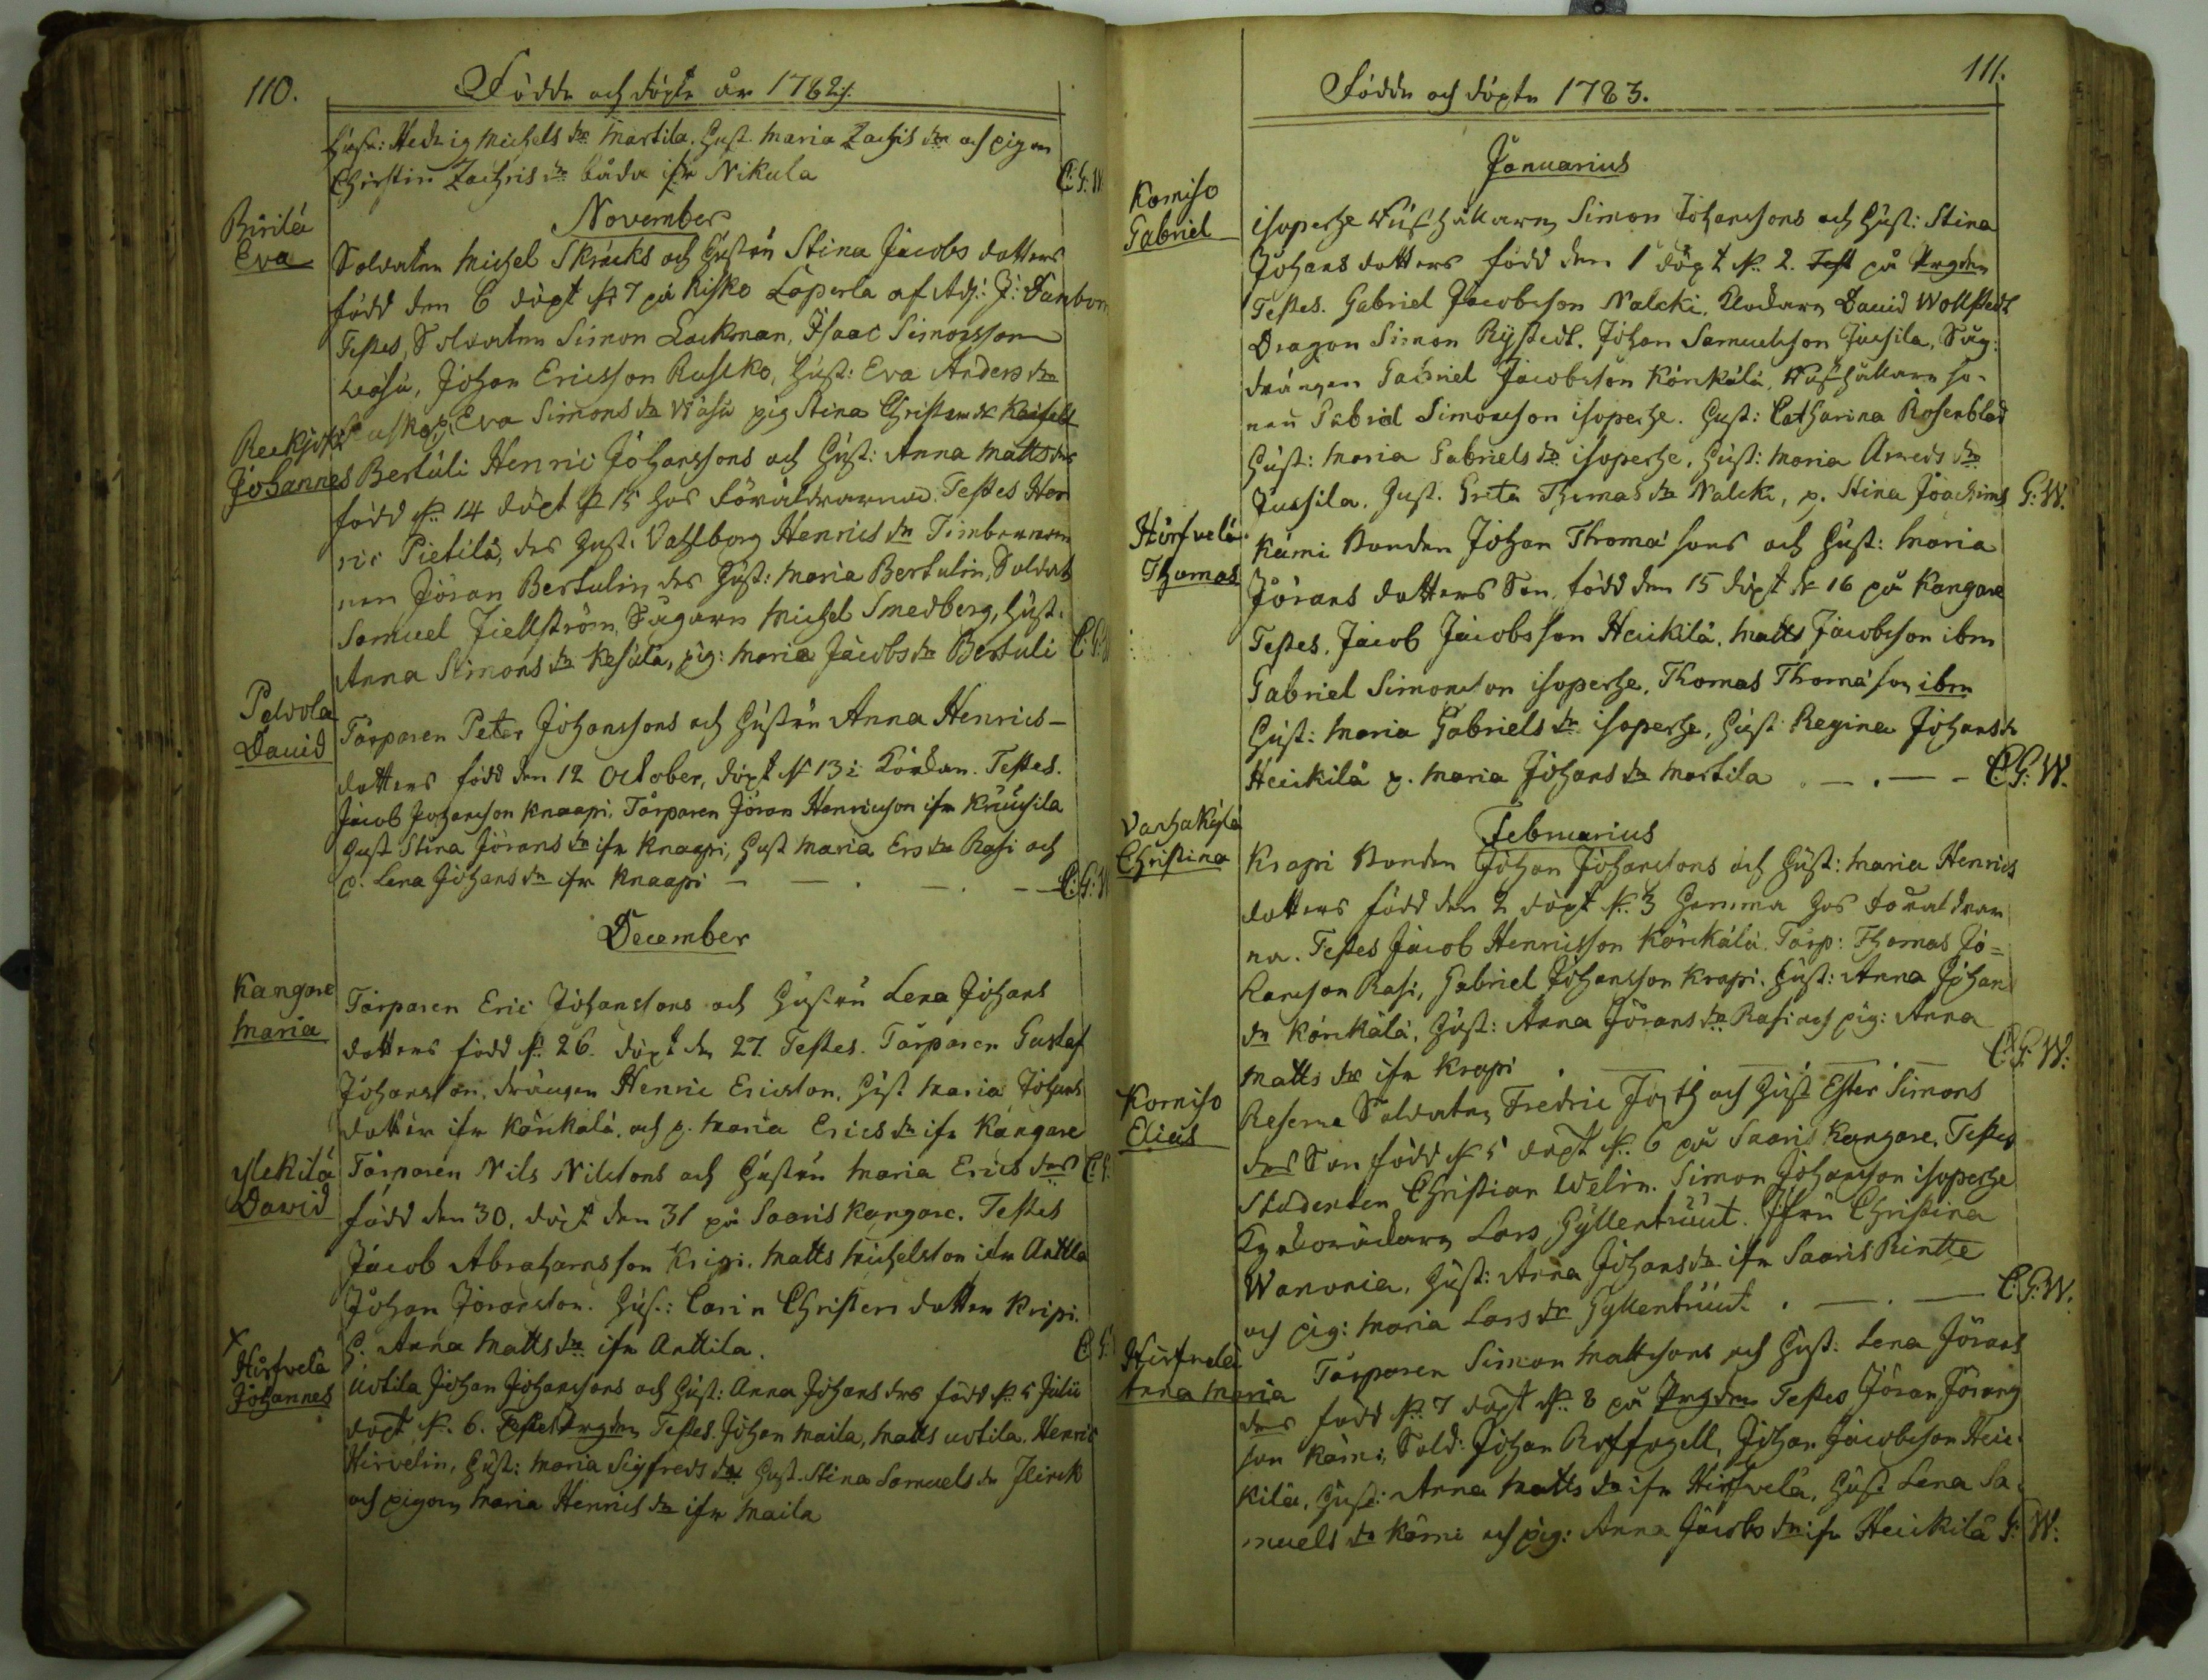 110.
Födde och döpte år 1782.
Hust: Hedvig Michels dr Martila. Hust. Maria Zachis dr och pigan
Christin Zachris dr båda ifr Nikula C:G:W
November
Pirilä
Eva
Soldaten Michel Skräcks och Hustru Stina Jacobs dotters
född den 6 döpt d 7 på Risko Laperla af Adj: J:
Testes, Soldaten Simon Lackman, Isaac Simonsson
Wäsü, Johan Ericsson Rusko, Hust: Eva Anders dr
Rusko, p. Eva Simons dr Wäsü pig Stina Christers dr
Johannes
Bertuli Henric Johanssons och Hust: Anna Matts drs
född d. 14 döpt d 15 hos Föräldrarna. Testes Hen
ric Pietilä, des Hust. Vahlborg Henrics dr Timberman
nen Jöran Bertulin, des Hust: Maria Bertulin, Soldat
Samuel Fiellström, Sågaren Michel Smedberg, Hust.
Anna Simons dr Kesälä, pig: Maria Jacobs dr Bertuli C:G:
Palvola
David
Torparen Peter Johanssons och Hustru Anna Henrics-
dotters född den 12 October, döpt d 13 i Kyrkan. Testes.
Jacob Johansson Knaapi, Torparen Jöran Henricsson ifr Kruusila
Hust Stina Jörans dr ifr Knaapi, Hust Maria Ers dr Rasi och
p. Lena Johans dr ifr Knaapi — — . — . — C:G:W
December
Kangare
Maria
Torparen Eric Johanssons och Hustru Lena Johans
dotters född d. 26. döpt den 27. Testes. Torparen Gustaf
Johansson, drängen Henric Ericsson, Hust Maria Johans
dotter ifr Körckälä, och p. Maria Erics dr ifr Kangare
Mekilä
David
Torparen Nils Nilssons och Hustru Maria Erics drs C:G:
född den 30. döpt den 31 på Saaris Kangare. Testes
Jacob Abrahamsson Kripi. Matts Michelsson ifr Anttla
Johan Joransson. Hust: Carin Christers dotter Kripi.
H. Anna Matts dr ifr Anttila. C:G:
x
Hirfvelä
Johannes
Uotila Johan Johanssons och Hust: Anna Johans drs född d. 5 Julii
döpt d. 6. Testes. Johan Maila, Matts Uotila, Henric
Hirvelin, Hust: Maria Sigfreds dr Hust. Stina Samuels dr
och pigan Maria Henrics dr ifr Maila
111.
Födde och döpte 1783.
Januarius
Korniso
Gabriel
Isoperhe Simon Johanssons och Hust: Stina
Johans dotters född den 1 döpt d. 2. på Prgdn
Testes. Gabriel Jacobsson Nalcki, Klockaren David Wollstedt
Dragon Simon Rystedt. Johan Samuelsson Jussila, Såg:
drängen Gabriel Jacobsson Körckälä, so-
nen Gabriel Simonsson isoperhe. Hust: Catharina Rosenblad
Hust: Maria Gabriels dr isoperhe, Hust: Maria dr
Jussila. Hust. Greta Thomas dr Nalcki, p. Stina Joachims G:W.
Hirfvelä
Thomas
Kämi Bonden Johan Thomasons och Hust: Maria
Jörans dotters Son, född den 15 döpt d 16 på Kangare
Testes. Jacob Jacobsson Heickilä. Matts Jacobsson ibm
Gabriel Simonsson isoperhe, Thomas Thomason ibm
Hust: Maria Gabriels dr isoperhe, Hust Regina Johans dr
Heickilä p. Maria Johans dr Martila . — . — – C:G:W.
Vachakylä
Christina
Februarius
Krapi Bonden Johan Johanssons och Hust: Maria Henrics
dotters född den 2 döpt d. 3 hemma hos föräldrar
na. Testes Jacob Henricsson Körckälä. Torp: Thomas Jö=
ransson Rasi, Gabriel Johansson Krapi. Hust: Anna Johan
dr Körckälä, Hust: Anna Jörans dr Rasi och pig: Anna
Matts dr ifr Krapi . — . — . — C:G:W:
Korniso
Elias
Reserve Soldaten Fredric och Hust Ester Simons
drs Son född d 5 döpt d. 6 på Saaris Kangare. Testes
Studenten Christian Welin. Simon Johansson isoperhe
Lars Gyllenbüüt. Jfru Christina
Wanonia, Hust: Anna Johans dr ifr Saaris Pintte
och pig: Maria Lars dr Gyllenbüüt. — . — C:G:W.
Hirfvelä
Anna Maria
Torparen Simon Mattssons och Hust: Lena Jörans
drs född d. 7 döpt d. 8 på Prgdn Testes Jöran Jörans
son Kämi, Sold: Johan Johan Jacobsson Heic-
kilä, Hust: Anna Matts dr ifr Hirfvelä, Hust Lena Sa-
muels dr Kämi och pig: Anna Jacobs dr ifr Heickilä G:W: